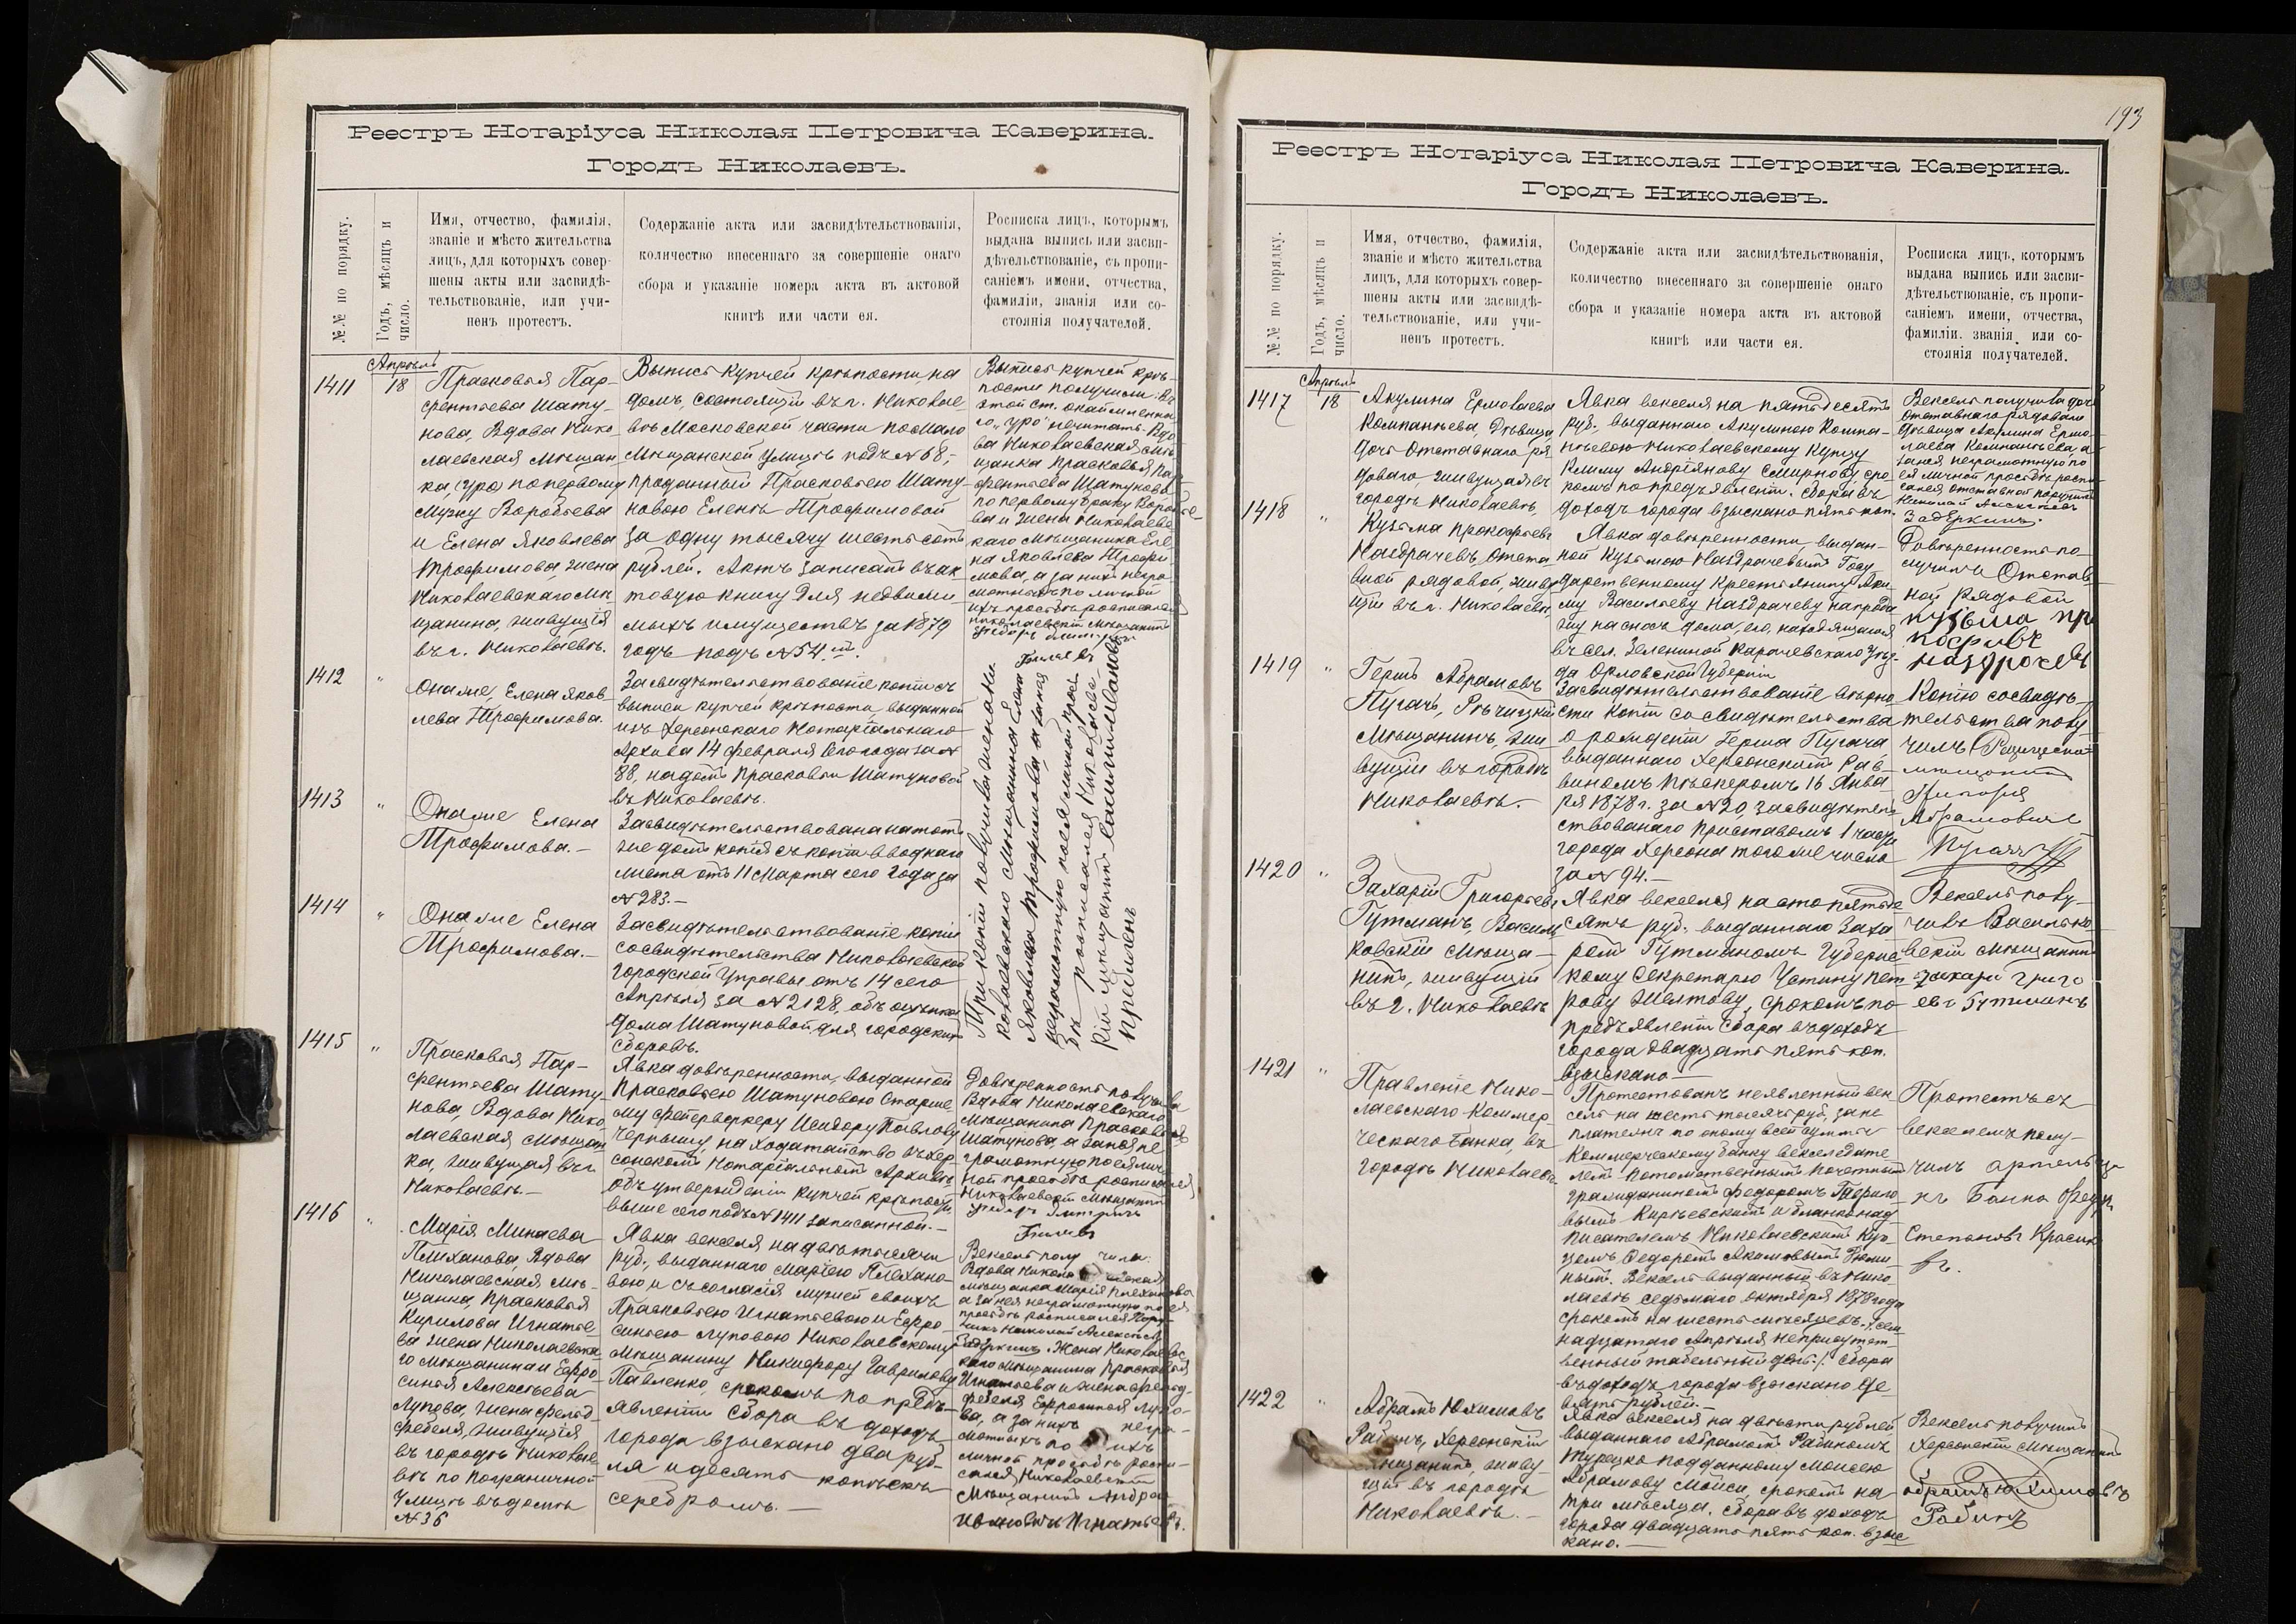 Реестръ Нотаріуса Николая Петровича Каверина.
Городъ Николаевъ.
№№ по порядку.
Годъ, мѣсяцъ и
число.
Имя, отчество, фамилія,
званіе и мѣсто жительства
лицъ, для которыхъ совер-
шены акты или засвидѣ-
тельствованіе, или учи-
ненъ протестъ.
Содержаніе акта или засвидѣтельствованія,
количество внесеннаго за совершеніе онаго
сбора и указаніе номера акта въ актовой
книгѣ или части ея.
Росписка лицъ, которымъ
выдана выпись или засви-
дѣтельствованіе, съ пропи-
саніемъ имени, отчества,
фамиліи, званія или со-
стоянія получателей.
1411
Апрѣль
18
Прасковья Пар-
фентьева Шату-
нова, Вдова Нико-
лаевская Мѣщан-
ка, (уро) по первому
мужу Воробьева
и Елена Яковлева
Трофимова, жена
Николаевскаго Мѣ-
щанина, живущія
въ г. Николаевѣ.
Выпись купчей крѣпости, на
домъ, состоящій въ г. Николае-
вѣ Московской части по Мало
Мѣщанской улицѣ подъ № 68,
проданный Прасковьею Шату-
новою Еленѣ Трофимовой
за одну тысячу шестьсотъ
рублей. Актъ записанъ въ ак-
товую книгу для недвижи-
мыхъ имуществъ за 1879
годъ подъ № 54ый.
Выпись купчей крѣ-
пости получили. Въ
этой ст. окаймленна-
го "уро" не читать. Вдо-
ва Николаевская мѣ-
щанка Прасковья Пар-
фентьева Шатунова
по первому браку Воробье-
ва и жена Николаевс-
каго Мѣщанина Еле-
на Яковлева Трофи-
мова, а за нихъ негра-
мотныхъ по личной
ихъ просьбѣ росписался
николаевскій мѣщанинъ
Федоръ Дмитріевъ
Беляевъ
1412
"
Она же Елена Яков-
лева Трофимова.
Засвидѣтельствованіе копіи съ
выписи купчей крѣпости выданной
изъ Херсонскаго Нотаріальнаго
Архива 14 февраля сего года за №
88, на домъ Прасковьи Шатуновой
въ Николаевѣ.
1413
"
Она же Елена
Трофимова.—
Засвидѣтельствована на тотъ
же домъ копія съ копіи вводнаго
листа отъ 11 Марта сего года за
№ 283.—
1414
"
Она же Елена
Трофимова.—
Засвидѣтельствованіе копіи
со свидѣтельства Николаевской
Городской Управы отъ 14 сего
Апрѣля за № 2128, объ оцѣнкѣ
дома Шатуновой для городскихъ
сборовъ.
Три копіи получила жена Ни-
колаевскаго мѣщанина Елена
Яковлева Трофимова, а за нее
неграмотную по ея личной прось-
бѣ росписался Николаевс-
кій мѣщанинъ
1415
"
Прасковья Пар-
фентьева Шату-
нова, Вдова Нико-
лаевская Мѣщан-
ка, живущая въ г.
Николаевѣ.—
Явка довѣренности, выданной
Прасковьею Шатуновою Старше-
му фейерверкеру Исидору Павлову
Чернышу, на ходатайство въ Хер-
сонскомъ Нотаріальномъ Архивѣ
объ утвержденіи купчей крѣпости
выше сего подъ № 1411 записанной.—
Довѣренность получила
Вдова Николаевскаго
Мѣщанина Прасковья
Шатунова а за нея не-
грамотную по ея лич-
ной просьбѣ росписался
Николаевскій Мѣщанинъ
Федоръ Дмитріевъ
Беляевъ
1416
"
Марія Минаева
Плеханова, Вдова
Николаевская Мѣ-
щанка, Прасковья
Кирилова Игнатье-
ва жена Николаевска-
го Мѣщанина и Ефро-
синья Алексѣева
Лупова, жена фельд-
фебеля, живущія
въ городѣ Николае-
вѣ по Пограничной
улицѣ въ домѣ
№ 36
Явка векселя на двѣ тысячи
руб., выданнаго Маріею Плехано-
вою и съ согласія мужей своихъ
Прасковьею Игнатьевою и Ефро-
синьею Луповою Николаевскому
Мѣщанину Никифору Гаврилову
Павленко, срокомъ по предъ-
явленіи. Сбора въ доходъ
города взыскано два руб-
ля и десять копѣекъ
серебромъ.—
Вексель получила
Вдова Николаевская
Мѣщанка Марія Плеханова
а за нея неграмотную по ея
просьбѣ росписался Пору-
чикъ Николай Алексѣевъ
Задеркинъ. Жена Николаевс-
каго мѣщанина Прасковья
Игнатьева и жена фельд-
фебеля Ефросинья Лупо-
ва, а за нихъ негра-
мотныхъ по ихъ
личной просьбѣ роспи-
сался Николаевскій
Мѣщанинъ Андрей
Ивановичъ Игнатьевъ.
193
Реестръ Нотаріуса Николая Петровича Каверина.
Городъ Николаевъ.
№№ по порядку.
Годъ, мѣсяцъ и
число.
Имя, отчество, фамилія,
званіе и мѣсто жительства
лицъ, для которыхъ совер-
шены акты или засвидѣ-
тельствованіе, или учи-
ненъ протестъ.
Содержаніе акта или засвидѣтельствованія,
количество внесеннаго за совершеніе онаго
сбора и указаніе номера акта въ актовой
книгѣ или части ея.
Росписка лицъ, которымъ
выдана выпись или засви-
дѣтельствованіе, съ пропи-
саніемъ имени, отчества,
фамиліи, званія или со-
стоянія получателей.
1417
Апрѣль
18
Акулина Ермолаева
Компанѣева, Дѣвица,
дочь Отставнаго ря-
доваго, живущая въ
городѣ Николаевѣ,
Явка векселя на пятьдесятъ
руб., выданнаго Акулиною Компа-
нѣевою Николаевскому Купцу
Климу Андріянову Смирнову, сро-
комъ по предъявленіи. Сбора въ
доходъ города взыскано пять коп.
Вексель получила дочь
Отставнаго рядоваго
дѣвица Акулина Ермо-
лаева Компанѣева а
за нея неграмотную по
ея личной просьбѣ роспи-
сался, отставной поручикъ
Николай Алексѣевъ
Задеркинъ.
1418
"
Кузьма Прокофьевъ
Наздрачевъ, Отста-
вной рядовой, живу-
щій въ г. Николаевѣ,
Явка довѣренности, выдан-
ной Кузьмою Наздрачевымъ Госу-
дарственному крестьянину Аки-
му Васильеву Наздрачеву на прода-
жу на сносъ дома, его, находящагося
въ сел. Зелениной Карачевскаго Уѣз-
да Орловской Губерніи
Довѣренность по-
лучилъ Отстав-
ной Рядовой
кузьма пр
кофивъ
наздрочевъ
1419
"
Гершъ Абрамовъ
Пугачъ, Рѣчицкій
Мѣщанинъ, жи-
вущій въ городѣ
Николаевѣ.—
Засвидѣтельствованіе вѣрно-
сти копіи со свидѣтельства
о рожденіи Герша Пугача
выданнаго Херсонскимъ Рав-
виномъ 16 Янва-
ря 1878 г. за № 20, засвидѣтель-
ствованаго Приставомъ 1 части
города Херсона того же числа
за № 94.—
Копію со свидѣ-
тельства полу-
чилъ
Абрамовичъ
Пугачъ
1420
"
Захарій Григорьевъ
Гутманъ, Василь-
ковскій Мѣща-
нинъ, живущій
въ г. Николаевѣ
Явка векселя на сто пятьде-
сятъ руб. выданнаго Заха-
ріемъ Гутманомъ Губернс-
кому Секретарю Устину Пет-
рову Желтову, срокомъ по
предъявленіи Сбора въ доходъ
города двадцать пять коп.
взыскано—
Вексель полу-
чивъ Василько-
вскій мѣщанинъ
захаръ григо
евъ Гутманъ
1421
"
Правленіе Нико-
лаевскаго Коммер-
ческаго Банка, въ
городѣ Николаевѣ.
Протестованъ неявленный век-
сель на шесть тысячъ руб., за не
платежъ по оному всей суммы
Коммерческому банку векселедате-
лемъ Потомственнымъ Почетнымъ
гражданиномъ Федоромъ Гаврило-
вымъ Кирѣевскимъ и бланконад-
писателемъ Николаевскимъ Куп-
цемъ Федоромъ Акимовымъ
Вексель выданный въ Нико-
лаевѣ седьмаго октября 1878 года
срокомъ на шесть мѣсяцевъ. /Сем-
надцатаго Апрѣля неприсутст-
венный табельный день./ Сбора
въ доходъ города взыскано де-
вять рублей.—
Протестъ съ
векселемъ полу-
чилъ артельщи
къ Банка Федоръ
Степановъ Красик
въ.
1422
"
Абрамъ Юхимовъ
Рабинъ, Херсонскій
Мѣщанинъ, живу-
щій въ городѣ
Николаевѣ.—
Явка векселя на двѣсти рублей
выданнаго Абрамомъ Рабиномъ
Турецко подданному Моисею
Абрамову Мойси, срокомъ на
три мѣсяца. Сбора въ доходъ
города двадцать пять коп. взыс-
кано.—
Вексель получилъ
Херсонскій Мѣщанинъ
абрамъ Юхимовъ
Рабинъ